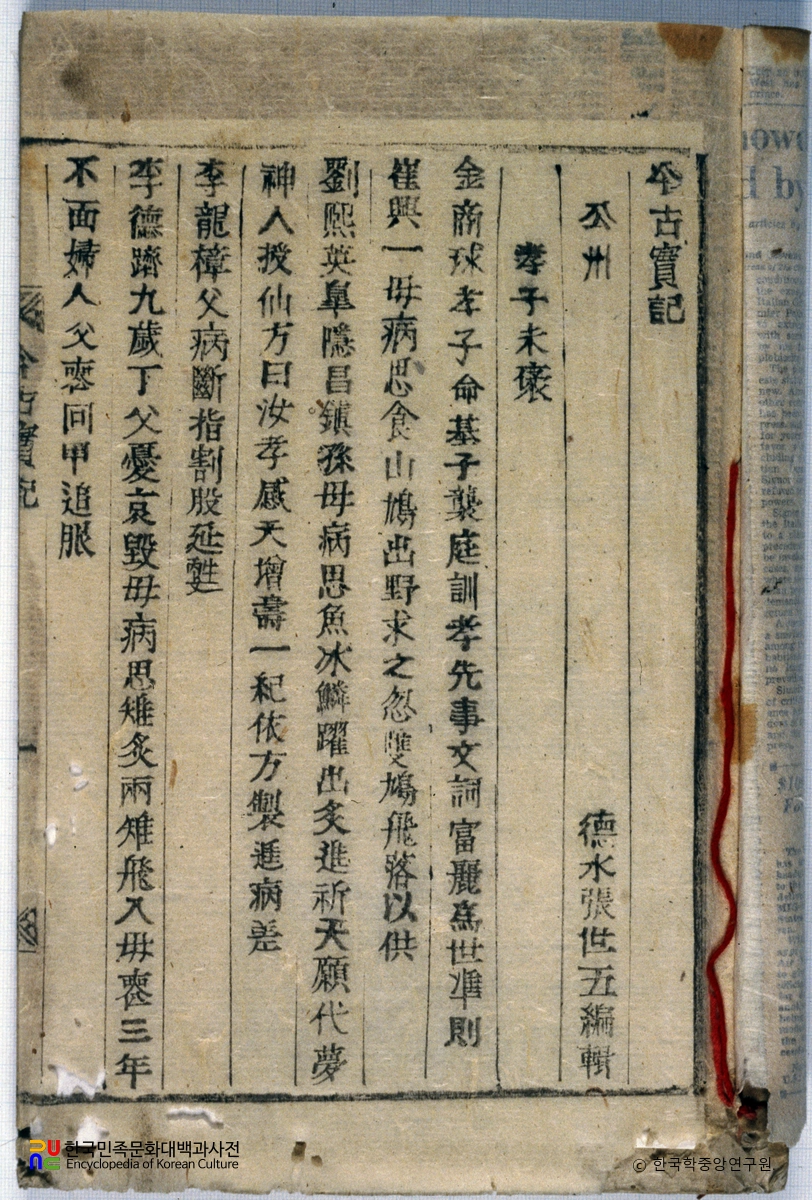 今古實記
公州 德水張世五編輯
孝子未襃
金商球孝子命基子襲庭訓孝先事文詞富麗爲世準則
崔興一母病思食山鳩出野求之忽雙鳩飛落以供
劉熙英阜隱昌鎭孫母病思魚冰鱗躍出炙進祈天願代夢
神人授仙方曰汝孝感天增壽一紀依方製進病差
李龍樟父病斷指割股延甦
李德躋九歲丁父憂哀毁母病思雉炙兩雉飛入母喪三年
不面婦人父喪回甲追服
今古實記
一
한국민족문화대백과사전
Encyclopedia of Korean Culture
© 한국학중앙연구원